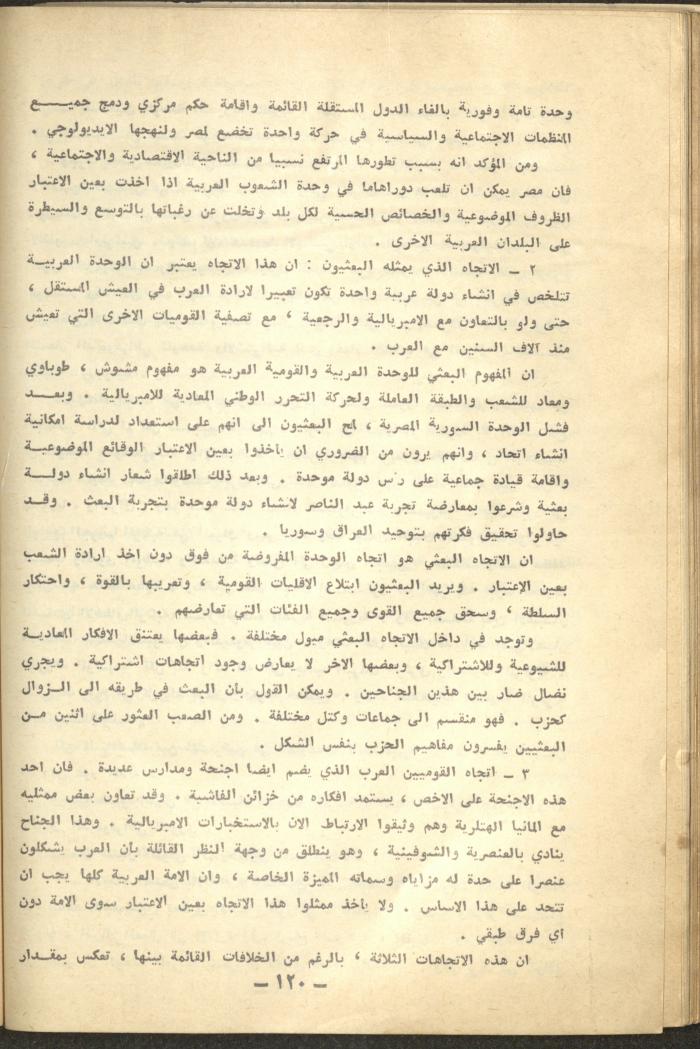 وحدة تامة وفورية بالغاء الدول المستقلة القائمة واقامة حكم مركزي ودمج جميـــــع
المنظمات الاجتماعية والسياسية في حركة واحدة تخضع لمصر ولنهجها الايديولوجي .
ومن المؤكد انه بسبب تطورها المرتفع نسبيا من الناحية الاقتصادية والاجتماعية ،
فان مصر يمكن ان تلعب دوراهاما في وحدة الشعوب العربية اذا اخذت بعين الاعتبار
الظروف الموضوعية والخصائص الحسية لكل بلد وتخلت عن رغباتها بالتوسع والسيطرة
على البلدان العربية الاخرى .
٢ ـ الاتجاه الذي يمثله البعثيون : ان هذا الاتجاه يعتبر ان الوحدة العربيــة
تتلخص في انشاء دولة عربية واحدة تكون تعبيرا لارادة العرب في العيش المستقل ،
حتى ولو بالتعاون مع الامبريالية والرجعية ، مع تصفية القوميات الاخرى التي تعيش
منذ آلاف السنين مع العرب .
ان المفهوم البعثي للوحدة العربية والقومية العربية هو مفهوم مشوش ، طوباوي
ومعاد للشعب والطبقة العاملة ولحركة التحرر الوطني المعادية للامبريالية . وبعــد
فشل الوحدة السورية المصرية ، لمح البعثيون الى انهم على استعداد لدراسة امكانية
انشاء اتحاد ، وانهم يرون من الضروري ان ياخذوا بعين الاعتبار الوقائع الموضوعيــة
واقامة قيادة جماعية على رأس دولة موحدة . وبعد ذلك اطلقوا شعار انشاء دولـــة
بعثية وشرعوا بمعارضة تجربة عبد الناصر لانشاء دولة موحدة بتجربة البعث . وقــد
حاولوا تحقيق فكرتهم بتوحيد العراق وسوريا .
ان الاتجاه البعثي هو اتجاه الوحدة المفروضة من فوق دون اخذ ارادة الشعب
بعين الإعتبار . ويريد البعثيون ابتلاع الاقليات القومية ، وتعريبها بالقوة ، واحتكار
السلطة ، وسحق جميع القوى وجميع الفئات التي تعارضهم .
وتوجد في داخل الاتجاه البعثي ميول مختلفة . فبعضها يعتنق الافكار المعادية
للشيوعية وللاشتراكية ، وبعضها الاخر لا يعارض وجود اتجاهات اشتراكية . ويجري
نضال ضار بين هذين الجناحين . ويمكن القول بان البعث في طريقه الى الــزوال
كحزب . فهو منقسم الى جماعات وكتل مختلفة . ومن الصعب العثور على اثنين مــن
البعثيين يفسرون مفاهيم الحزب بنفس الشكل .
٣ ـ اتجاه القوميين العرب الذي يضم ايضا اجنحة ومدارس عديدة . فان احد
هذه الاجنحة على الاخص ، يستمد افكاره من خزائن الفاشية . وقد تعاون بعض ممثليه
مع المانيا الهتلرية وهم وثيقوا الارتباط الان بالاستخبارات الامبريالية . وهذا الجناح
ينادي بالعنصرية والشوفينية ، وهو ينطلق من وجهة النظر القائلة بان العرب يشكلون
عنصرا على حدة له مزاياه وسماته المميزة الخاصة ، وان الامة العربية كلها يجب ان
تتحد على هذا الاساس . ولا ياخذ ممثلوا هذا الاتجاه بعين الاعتبار سوى الامة دون
اي فرق طبقي .
ان هذه الاتجاهات الثلاثة ، بالرغم من الخلافات القائمة بينها ، تعكس بمقدار
ـ ١٢٠ ـ